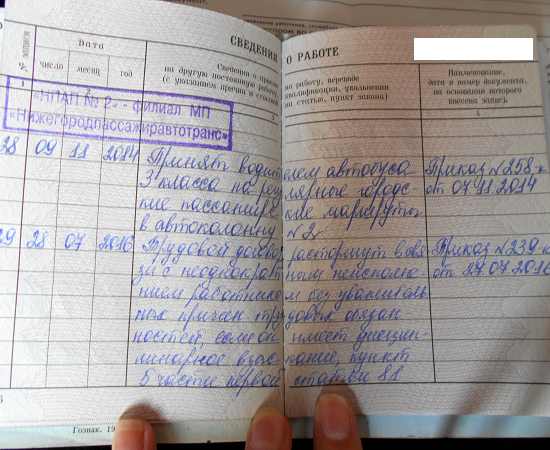 СВЕДЕНИЯ О РАБОТЕ
№ записи
Дата
число
месяц
год
Сведения о приеме
на другую постоянную работу
(с указанием причин и ссылкой
на работу, переводе
квалификации, увольнении
на статью, пункт закона)
Наименование,
дата и номер документа,
на основании которого
внесена запись
1
4
«НПАП № 2» - филиал МП
«Нижегородпассажиравтотранс»
28 09 11 2014 Принят водителем автобуса Приказ №258-к
3 класса на регулярные городс- от 07 11 2014
кие пассажирские маршруты
в автоколонну №2
29 28 07 2016 Трудовой договор расторгнут в свя- Приказ №239-к
зи с неоднократным неисполне- от 27.07.2016
нием работником без уважитель
ных причин трудовых обязан
ностей, если он имеет дисцип-
линарное взыскание, пункт
5 части первой статьи 81
Гознак. 19